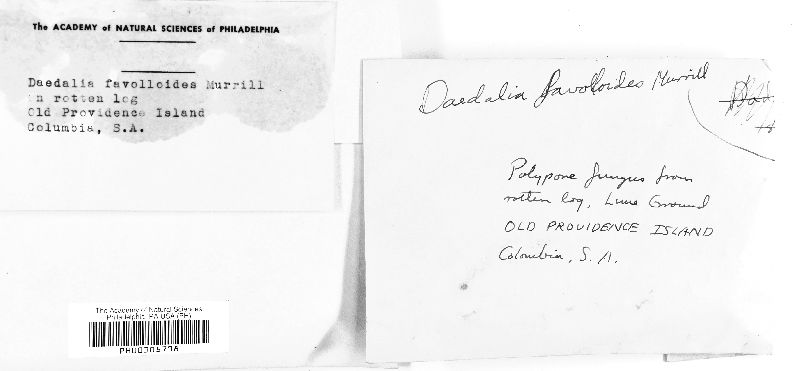 The ACADEMY of NATURAL SCIENCES of PHILADELPHIA
Daedalia favolloides Murrill
n rotten log
Old Providence Island
Columbia, S.A.
Daedalia favolloides Murrill
Polypore fungus from
rotten log, Lime Ground
OLD PROVIDENCE ISLAND
Colombia, S. A.
The Academy of Natural Sciences
Philadelphia, PA USA (PH)